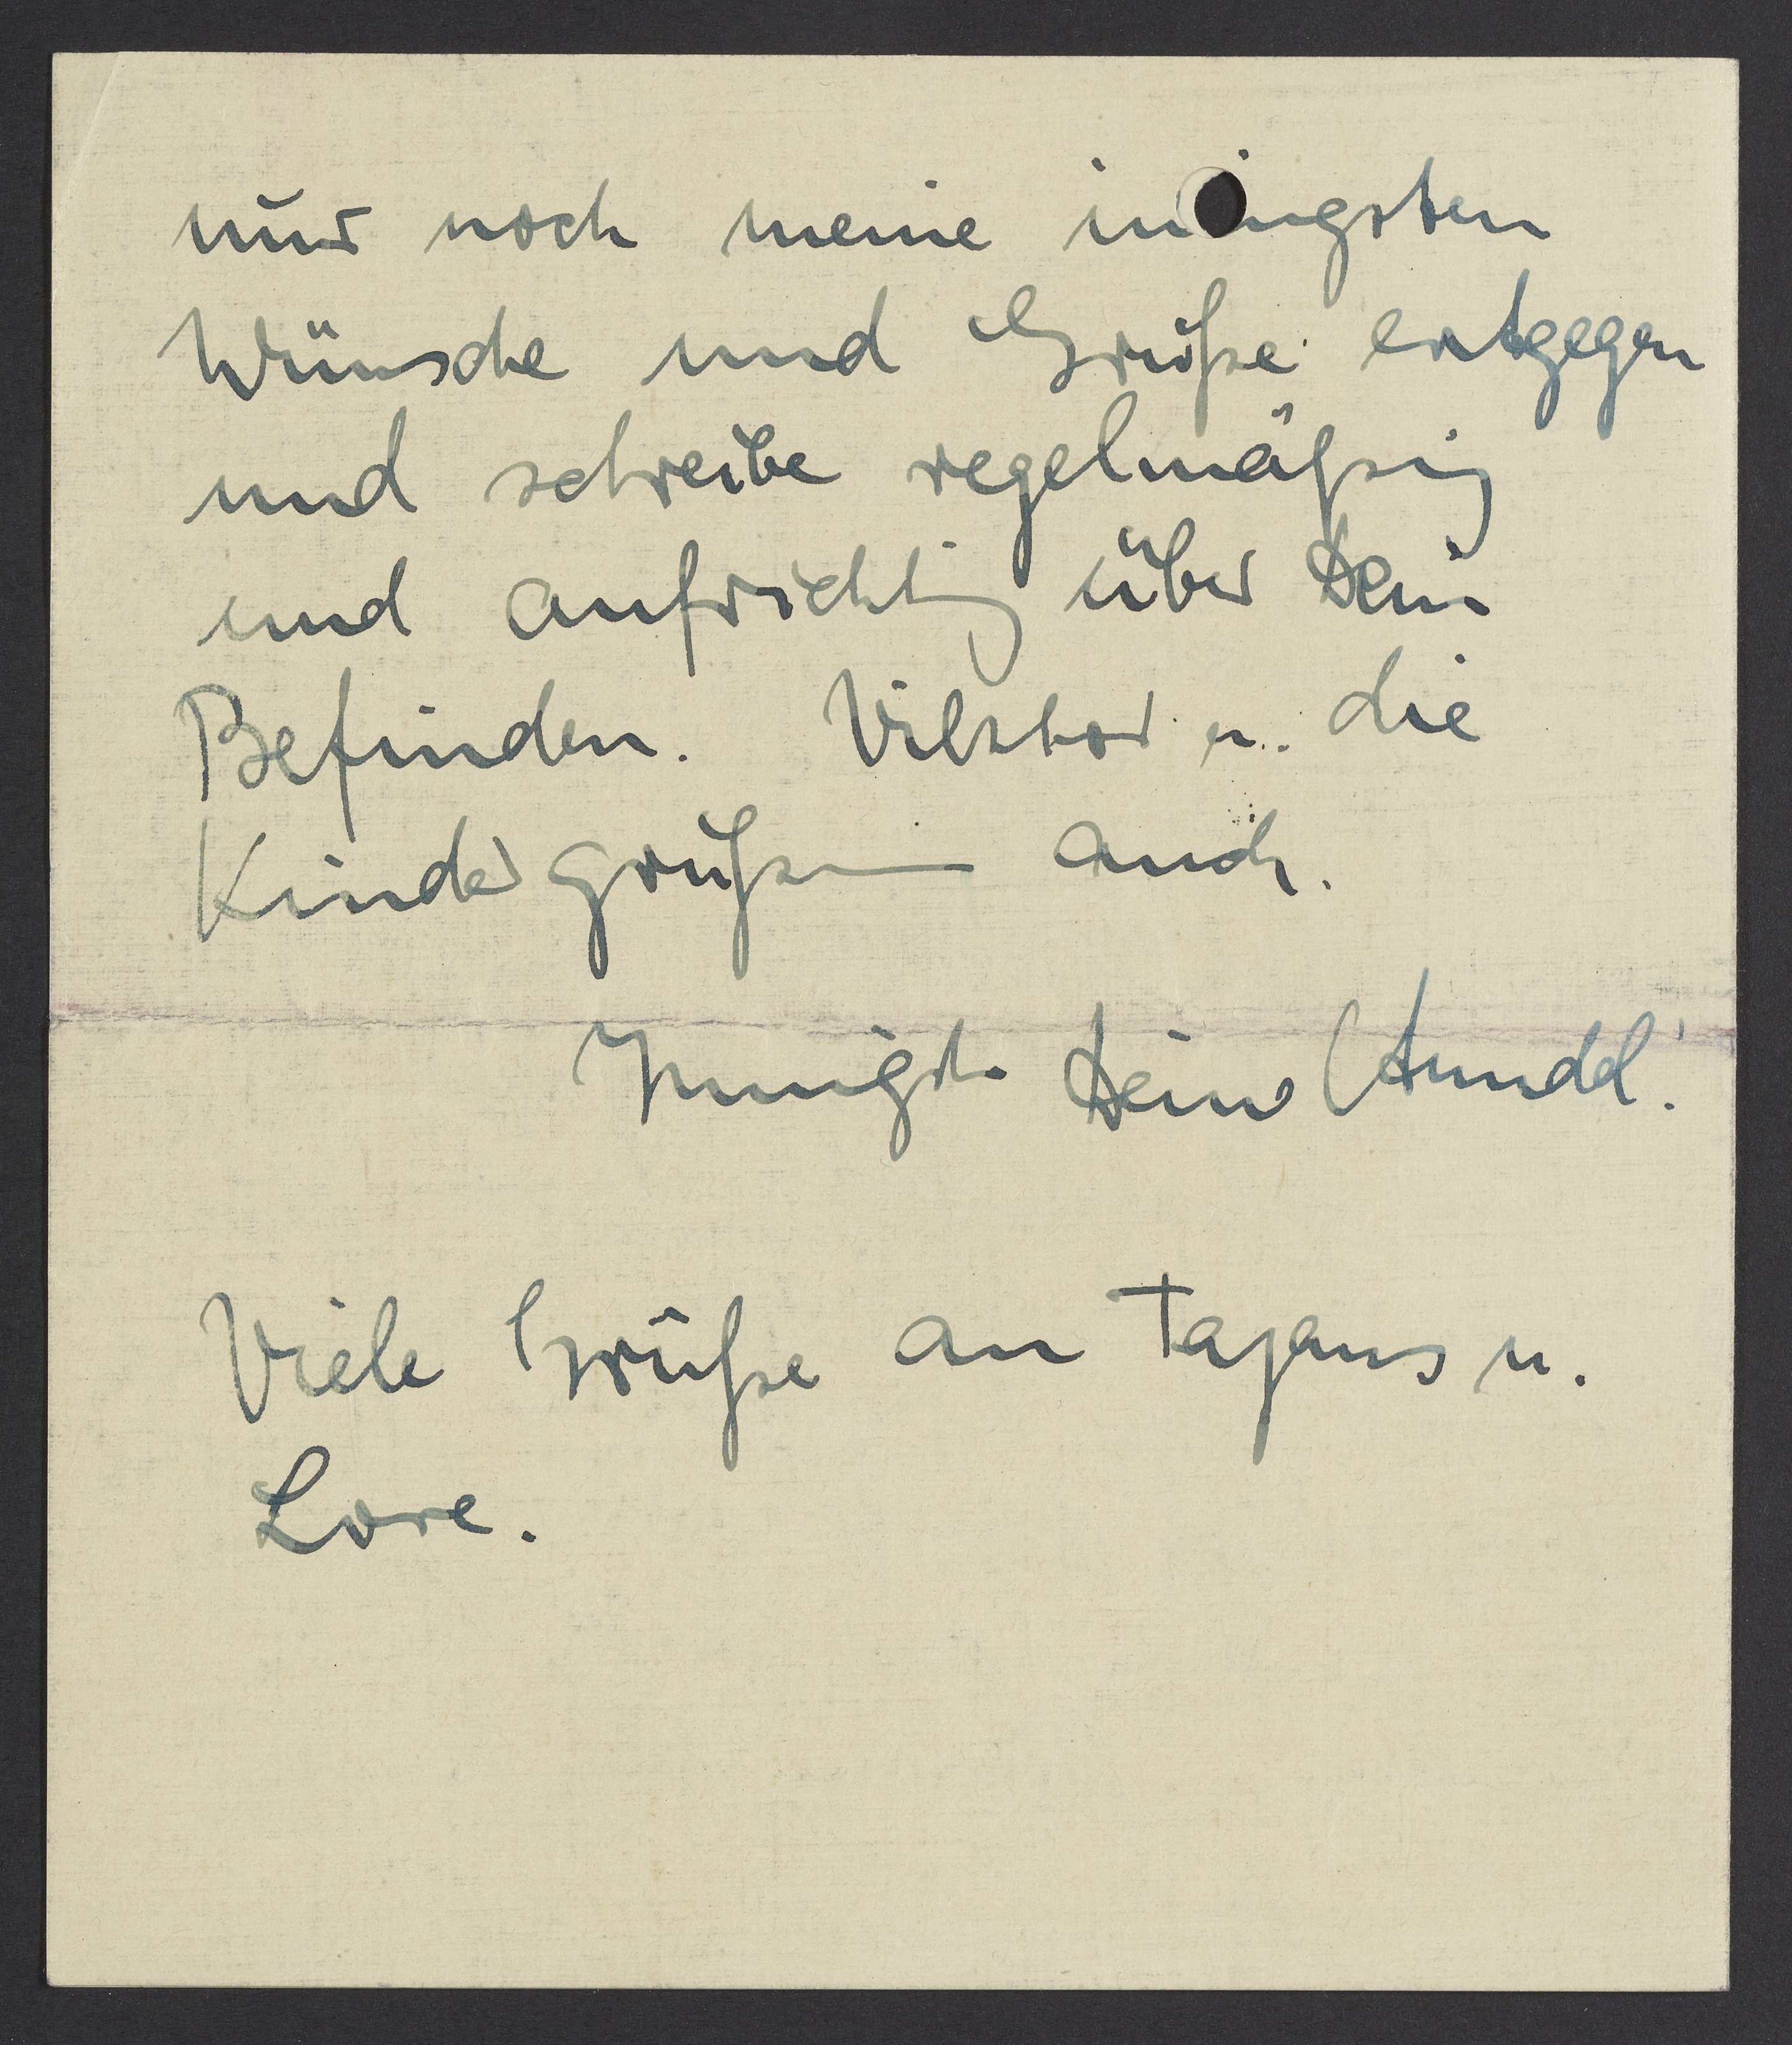 nur noch meine innigsten
Wünsche und Grüße entgegen
und schreibe regelmäßig
und aufrichtig über Dein
Befinden. Viktor u. die
Kinder grüßen auch.
Innigst Deine
Viele Grüße an Tajans u.
Lore.